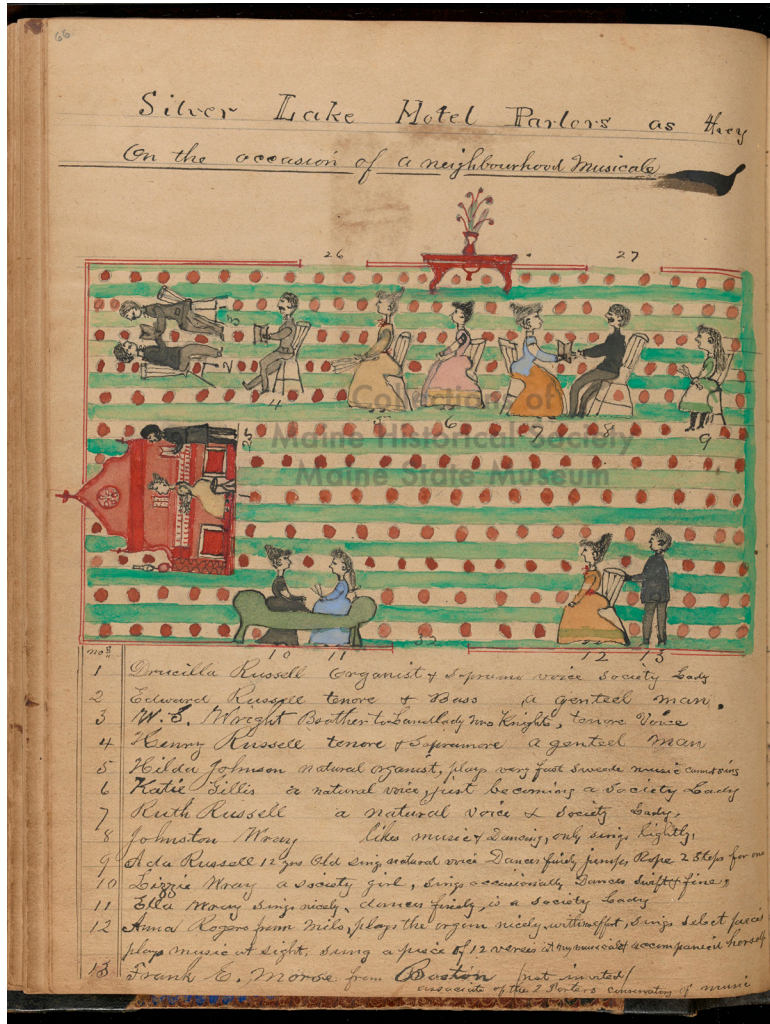 66
Silver Lake Hotel Parlors as they
On the occasion of a neighbourhood Musicale
26 27
3
2
4 5 6 7 8 9
25
1
Collection of
Maine Historical Society
Maine State Museum
32
10 11 12 13
nos
1 Drucilla Russell organist & Soprano voice Society Lady
2 Edward Russell tenore & Bass a genteel man.
3 W. E. Wright Brother to Landlady Mrs Knights, tenore Voice
4 Henry Russell tenore & Sopramore a genteel man
5 Hilda Johnson natural organist, plays very fast Swede music
6 Katie Gillis a natural voice, just becoming a Society Lady
7 Ruth Russell a natural voice & Society Lady,
8 Johnston Wray likes music & Dancing, only sings lightly,
9 Ada Russell 12 yrs Old sing natural voice Dances finely jumps, Rope 2 Steps for one
10 Lizzie Wray a society girl, sings occasionally Dances Swift & fine,
11 Ella Wray Sings nicely, dances finely, is a Society Lady
12 Anna Rogers from Milo, plays the organ nicely, without effort, Sings select pieces
plays music at Sight, Sung a piece of 12 verses at my musical & accompanied herself
13 Frank E. Morse from Boston (not invited)
associate of the 2 Porters conservatory of music